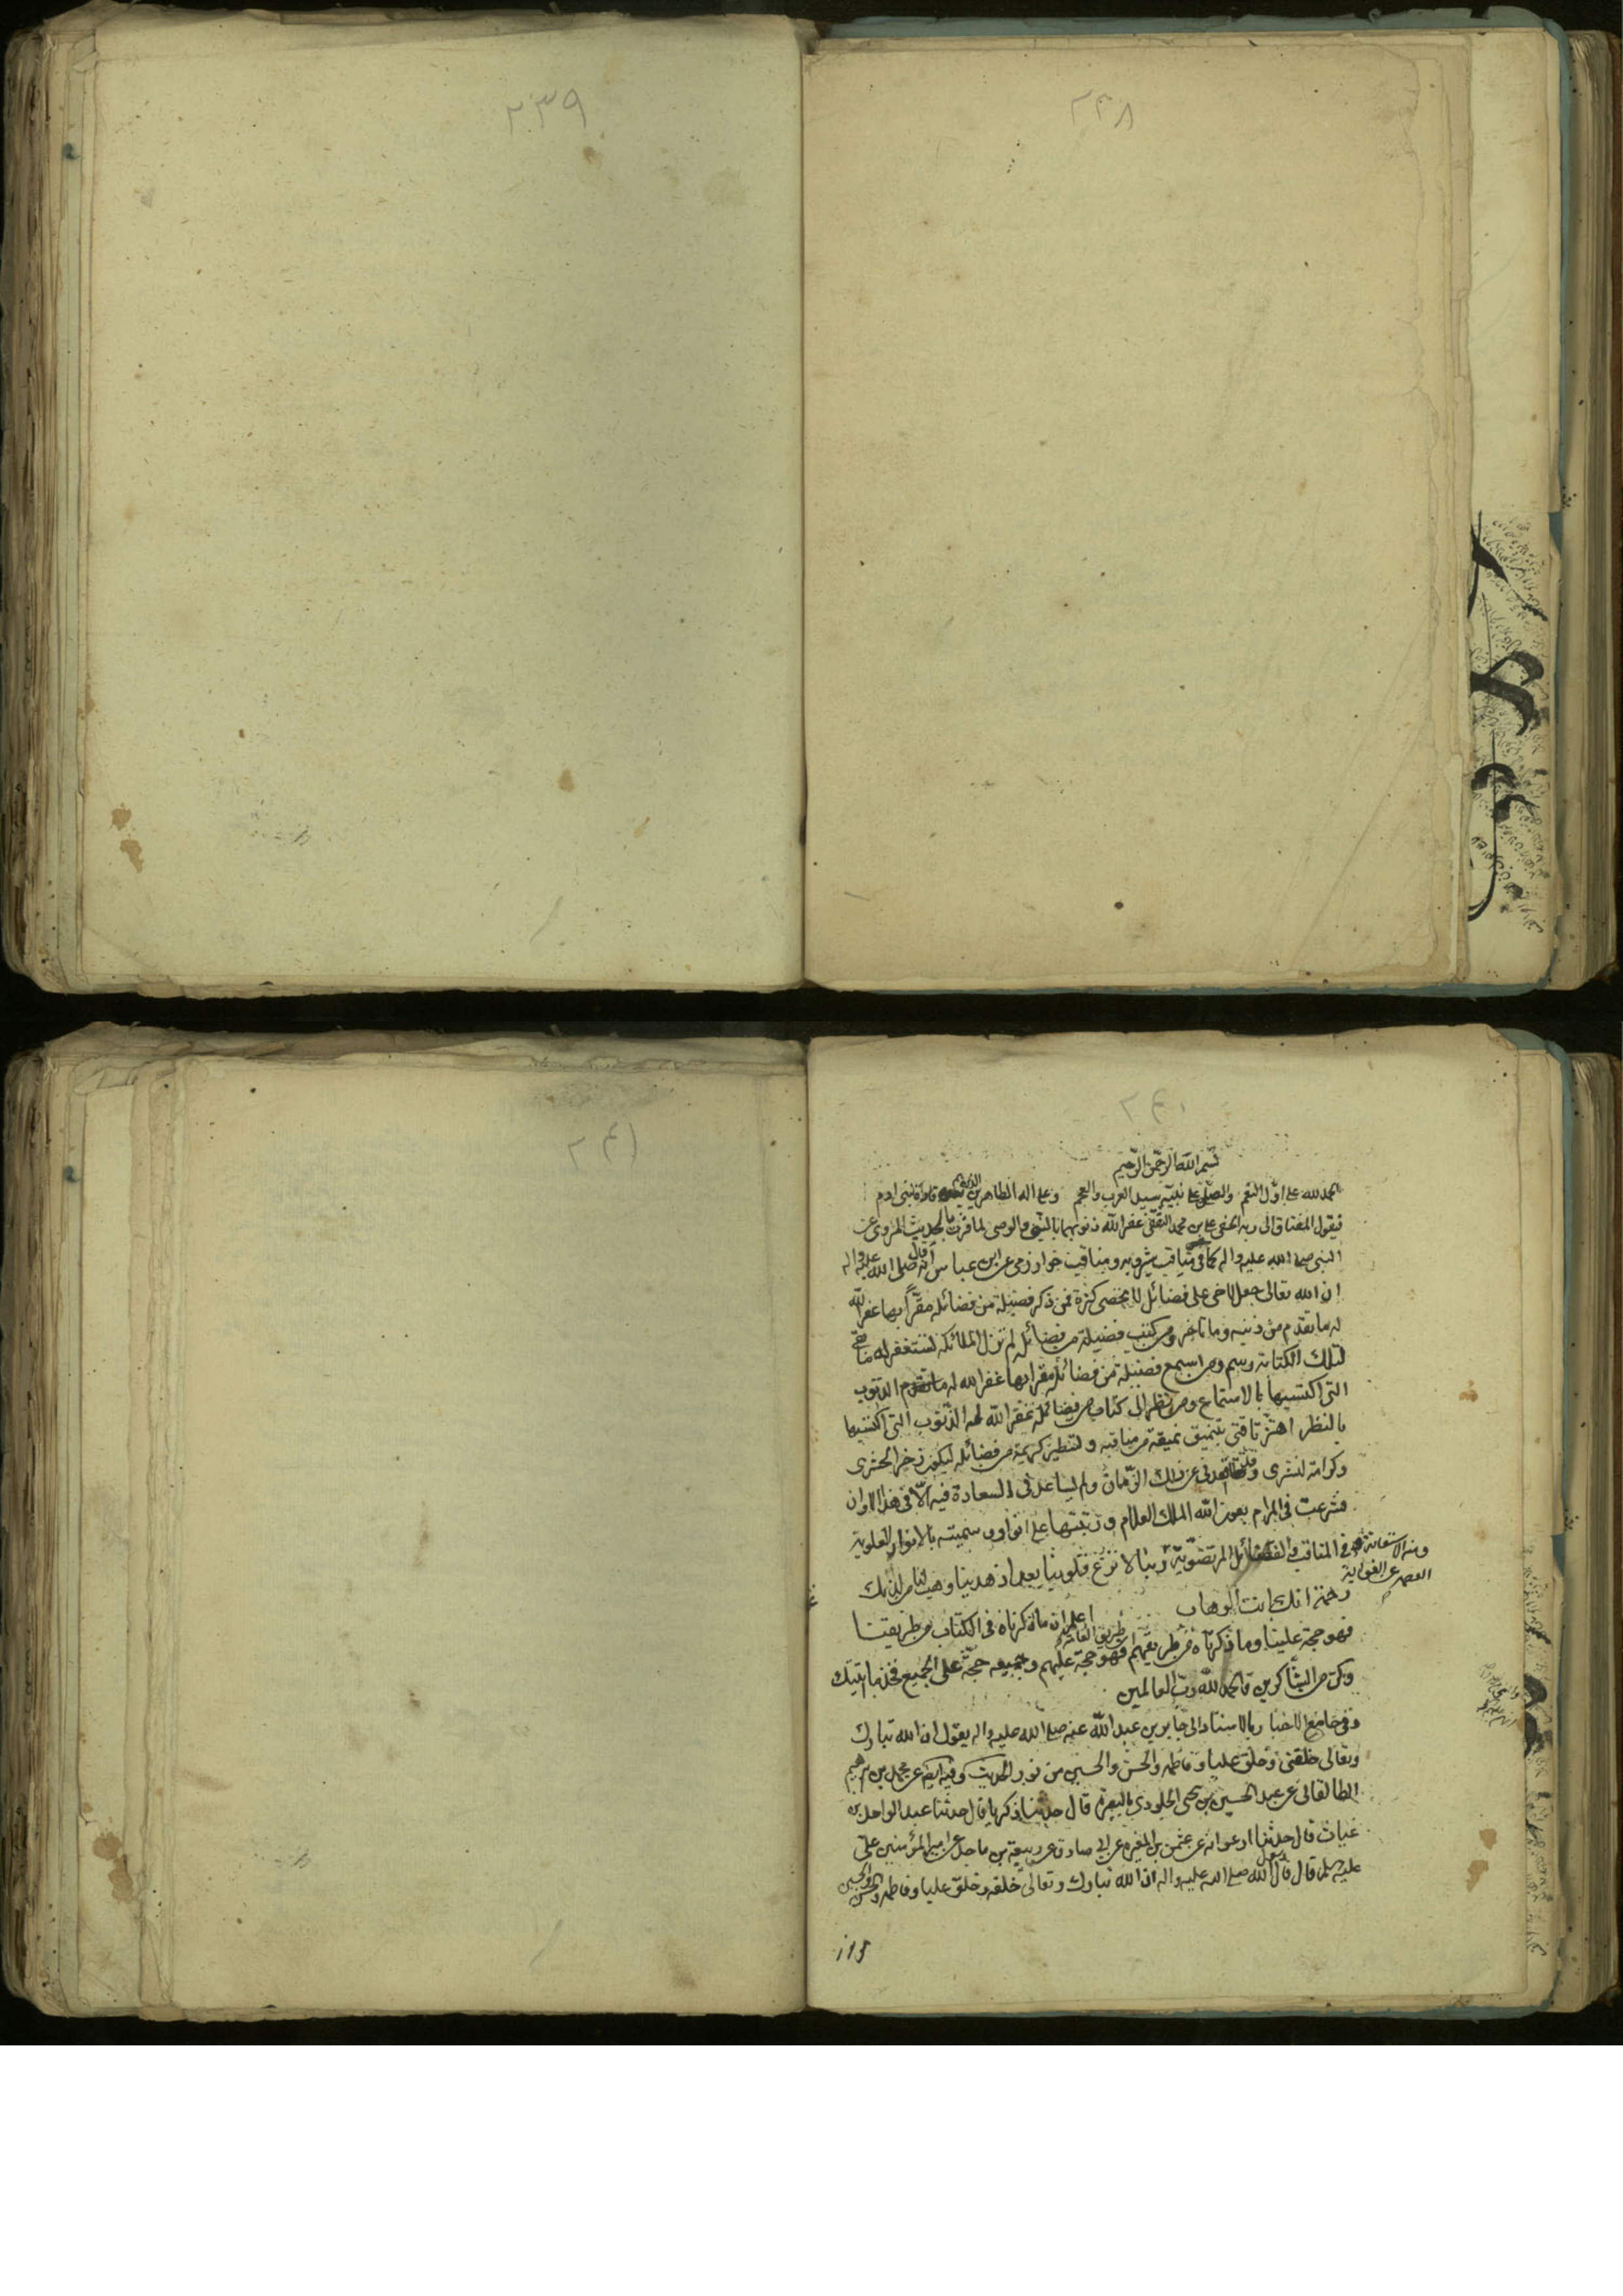 ٢٣٨
٢٣٩
٢٤٠
بسم الله الرحمن الرحيم
الحمد لله على اوّل النعم والصلوة على نبيّه سيد العرب والعجم وعلى اله الطاهرين قادة بنى ادم
فيقول المفتاق الى ربه الغنى على بن محمد النقى غفر الله ذنوبهما بالنبى والوصى لما قرئت الحديث المروى عن
النبى صلى الله عليه واله كما فى مناقب شيرويه ومناقب خوارزمى عن ابن عباس انه قال صلى الله عليه واله
ان الله تعالى جعل لاخى على فضائل لا تحصى كثرة فمن ذكر فضيلة من فضائله مقرّاً بها غفر الله
له ما تقدم من ذنبه وما تاخر ومن كتب فضيلة من فضائله لم تزل الملائكة تستغفر له ما بقى
لتلك الكتابة رسم ومن استمع فضيلة من فضائله مقرا بها غفر الله له ما تقدم الذنوب
التى اكتسبها بالاستماع ومن نظر الى كتاب من فضائله غفر الله له الذنوب التى اكتسبها
بالنظر اهتزّ تاقتى بتنميق نميقة من مناقبه و لتطير كريمة من فضائله ليكون ذخرا لحشرى
وكرامة لنشرى عن ذلك الزمان ولم يساعدنى السعادة فيه الّا فى هذا الاوان
فشرعت فى المرام بعون الله الملك العلام ورتبتها على انوار وسميته بالانوار العلوية
فى المناقب والفضائل المرتضوية ربنا لا تزغ قلوبنا بعد اذ هديتنا وهب لنا من لدنك
ومنه الاستعانة
العصمة عن الغواية
رحمة انك انت الوهاب اعلم ان ما ذكرناه فى الكتاب من طريقتنا
طريق العامة
فهو حجة علينا وما ذكرناه من طريقهم فهو حجة عليهم وجميعه حجّة على الجميع فخذ ما اتيتك
وكن من الشاكرين والحمد لله رب العالمين
وفى جامع الاخبار بالاسناد الى جابر بن عبد الله عنه صلى الله عليه واله يقول ان الله تبارك
وتعالى خلقنى وخلق عليا وفاطمة والحسن والحسين من نور الحديث وفيه ايضا عن محمد بن ابرهيم
الطالقانى عن عبد الحسين بن يحيى الجلودى بالبصرة قال حدثنا زكريا قال حدثنا عبد الواحد بن
غياث قال حدثنا ابو عوانه عن عثمن بن المغيره عن ابى صادق عن ربيعة بن ماجد عن امير المؤمنين على
عليه سلم قال قال رسول الله صلى الله عليه واله ان الله تبارك وتعالى خلقه وخلق عليا وفاطمه والحسن والحسين
٢٤١